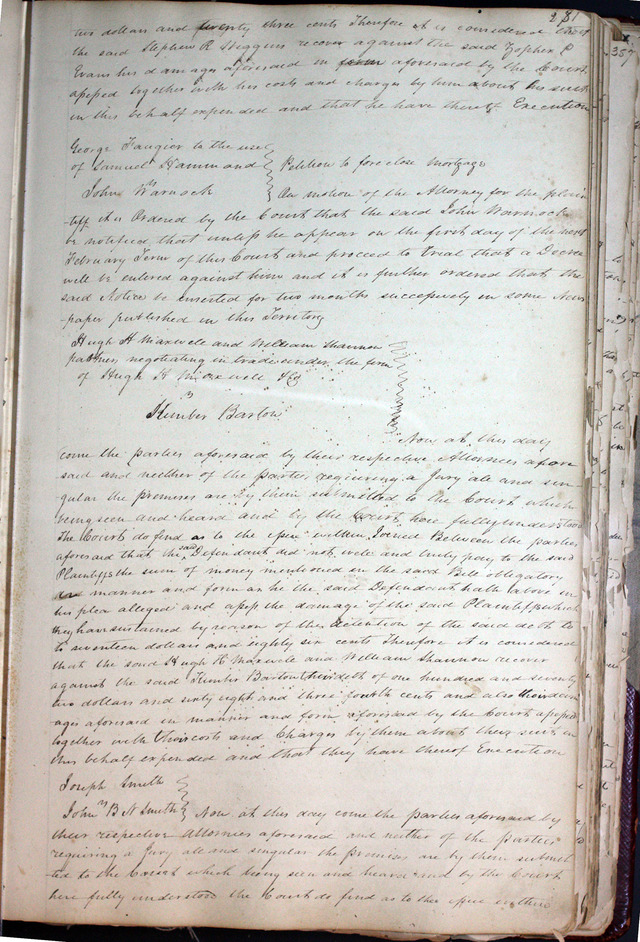 281
ten dollars and twenty three cents Therefore it is considered that
the said Stephen R Wiggins recover against the said Zopher P
Evans his damages aforesaid in form aforesaid by the Court
assessed together with his costs and charges by him about his suit
in this behalf expended and that he have thereof Execution
357
George Faugier to the use
of Samuel Hammond
vs
John Warnock
Petition to foreclose Mortgage
On motion of the Attorney for the plain
tiff it is Ordered by the Court that the said John Warnock
be notified that unless he appear on the first day of the next
February Term of this Court and proceed to Trial that a Decree
will be entered against him and it is further ordered that the
said Notice be inserted for two months successively in some News
paper published in this Territory
Hugh H Maxwell and William Shannon
partners negotiating in trade under the firm
of Hugh H Maxwell & Co
vs
Kimber Barlow
Now at this day
come the parties aforesaid by their respective Attornies afore
said and neither of the parties requiring a Jury all and sin
gular the premises are by them submitted to the Court which
being seen and heard and by the Court here fully understood
The Court do find as to the issue within Joined Between the parties
aforesaid that the said Defendant did not well and truly pay to the said
Plaintiffs the sum of money mentioned in the said Bill obligatory
in manner and form as he the said Defendant hath above in
his plea alleged and assess the damage of the said Plaintiffs which
they have sustained by reason of the detention of the said debt to
to seventeen dollars and eighty six cents Therefore it is considered
that the said Hugh H Maxwell and William Shannon recover
against the said Kimber Barlow their debt of one hundred and seventy
two dollars and sixty eight and three fourth cents and also their dam
ages aforesaid in manner and form aforesaid by the Court assessed
together with their costs and Charges by them about their suit in
this behalf expended and that they have thereof Execution
Joseph Smith
vs
John B N Smith
Now at this day come the parties aforesaid by
their respective Attornies aforesaid and neither of the parties
requiring a Jury all and singular the premises are by them submit
ted to the Court which being seen and heard and by the Court
here fully understood the Court do find as to the issue within